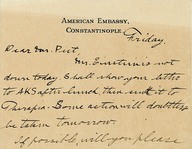 AMERICAN EMBASSY,
CONSTANTINOPLE.
Friday.
Dear Mr. Peet,
Mr. Einstein is not
down today. I shall show your letter
to after lunch then send it to
Therapia. Some action will doubtless
be taken tomorrow.
If possible, will you please